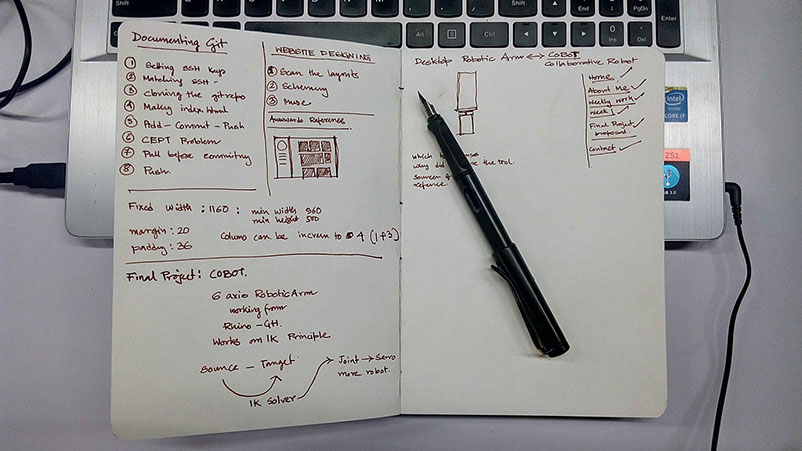 Documenting Git
① Setting SSH Keys
② Matching SSH.
③ Cloning the git repo
④ Making index.html
⑤ Add - Commit - Push
⑥ CEPT Problem
⑦ Pull before commiting
⑧ Push.
WEBSITE DESIGNING
① Scan the layouts
② Scheming
③ Muse
Reference
Fixed width : 1160 : min width 960
min height 500
margin : 20
padding : 36
Column can be increm to 4 (1+3)
Final Project : COBOT.
6 axis Robotic Arm
working from
Rhino - GH.
Works on IK Principle
Source - Target
IK Solver
Joint → Servo
more robot.
Desktop Robotic Arm ↔ COBOT
Collaborative Robot
Home
About Me
Weekly work
Week 1
Final Project
proposal
Contact
which
why did the tool.
Sources &
refernce
Alt
Ctrl
End
0
Ins
.
Del
Enter
PgDn
intel
inside
CORE i3